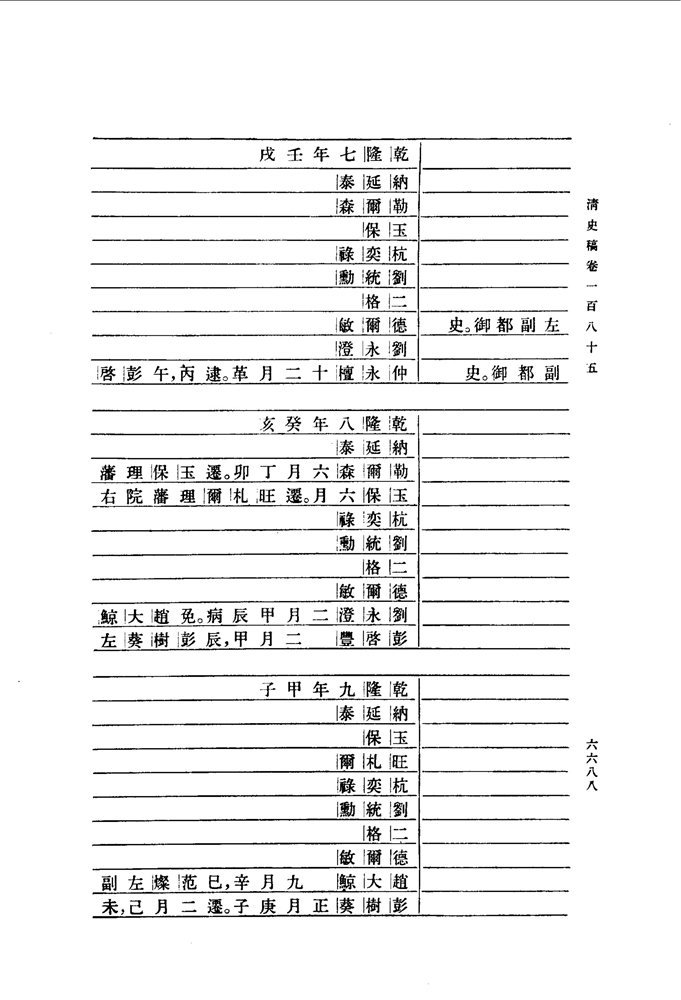 清史稿卷一百八十五
六六八八
乾隆七年壬戌
納延泰
勒爾森
玉保
杭奕祿
劉統勳
二格
左副都御史。
德爾敏
劉永澄
副都御史。
仲永檀十二月革逮。丙午,彭啓
乾隆八年癸亥
納延泰
勒爾森六月丁卯遷。玉保理藩
玉保六月遷。旺札爾理藩院右
杭奕祿
劉統勳
二格
德爾敏
劉永澄二月甲辰病免。趙大鯨
彭啓豐 二月甲辰,彭樹葵左
乾隆九年甲子
納延泰
玉保
旺札爾
杭奕祿
劉統勳
二格
德爾敏
趙大鯨 九月辛巳,范燦左副
彭樹葵正月庚子遷。二月己未,